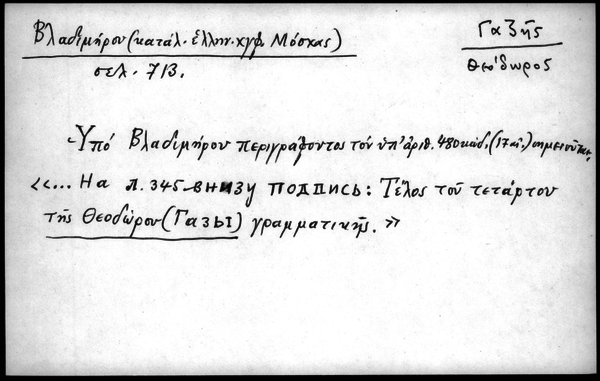 Βλαδιμήρου (κατάλ. ἑλλην. χγφ. Μόσχας)
σελ. 713.
Γαζῆς
Θεόδωρος
Ὑπό Βλαδιμήρου περιγράφοντος τόν ὑπ' ἀριθ. 480 κώδ. (17 αἰ.) σημειοῦται
«... На л. 345 внизу подпись: Τέλος τοῦ τετάρτου
τῆς Θεοδώρου (Газы) γραμματικῆς. »